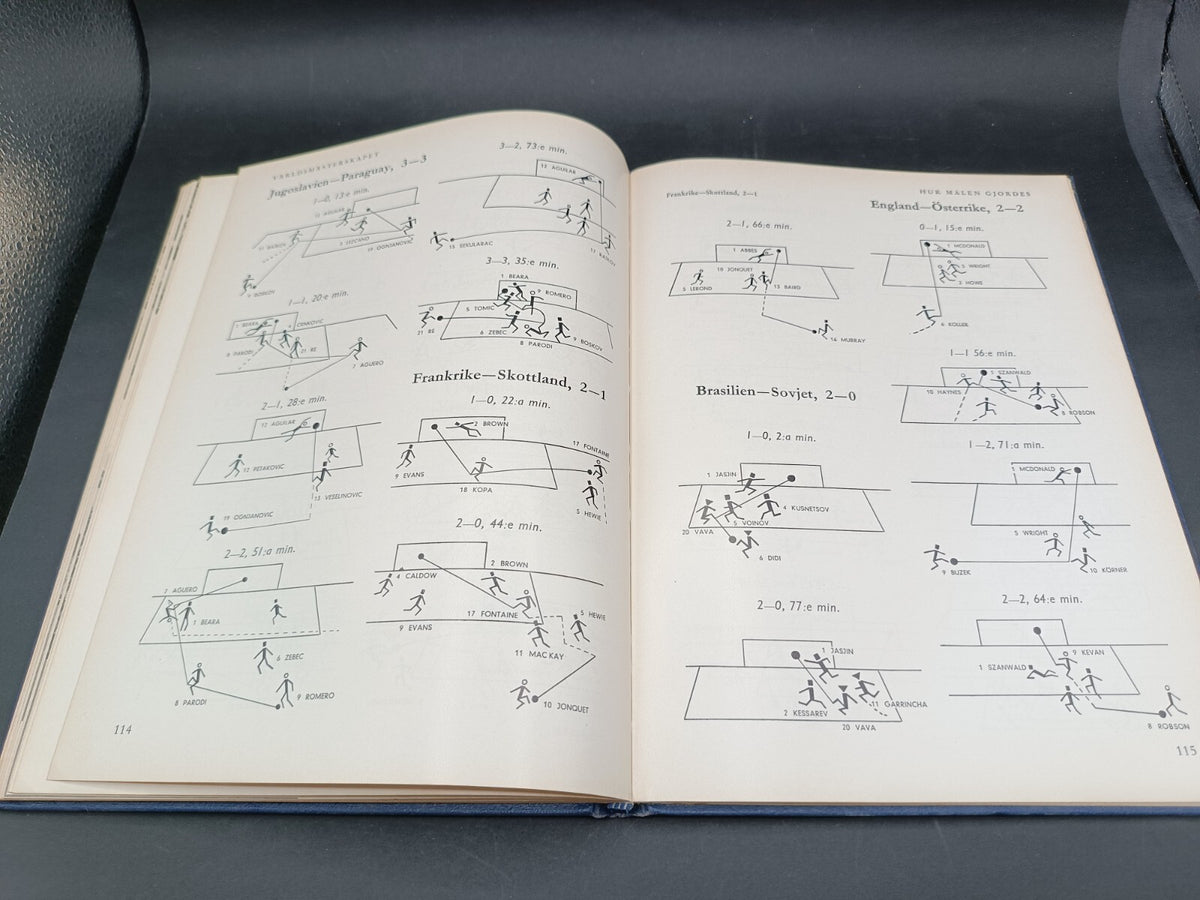 VÄRLDSMÄSTERSKAPET
Jugoslavien—Paraguay, 3—3
1—0, 13:e min.
12 AGUILAR
2 LEZCANO
19 OGNJANOVIC
1—1, 20:e min.
1 BEARA
CRNKOVIC
8 PARODI
21 RE
7 AGUERO
2—1, 28:e min.
12 AGUILAR
12 PETAKOVIC
13 VESELINOVIC
19 OGNJANOVIC
2—2, 51:a min.
7 AGUERO
1 BEARA
6 ZEBEC
8 PARODI
9 ROMERO
114
3—2, 73:e min.
12 AGUILAR
15 SEKULARAC
17 RAJKOV
3—3, 35:e min.
1 BEARA
9 ROMERO
5 TOMIC
21 RE
6 ZEBEC
8 PARODI
9 BOSKOV
Frankrike—Skottland, 2—1
1—0, 22:a min.
2 BROWN
17 FONTAINE
9 EVANS
18 KOPA
5 HEWIE
2—0, 44:e min.
2 BROWN
4 CALDOW
17 FONTAINE
5 HEWIE
9 EVANS
11 MACKAY
10 JONQUET
Frankrike—Skottland, 2—1
2—1, 66:e min.
1 ABBES
10 JONQUET
5 LEROND
13 BAIRD
14 MURRAY
Brasilien—Sovjet, 2—0
1—0, 2:a min.
1 JASJIN
4 KUSNETSOV
5 VOINOV
20 VAVA
6 DIDI
2—0, 77:e min.
1 JASJIN
11 GARRINCHA
2 KESSAREV
20 VAVA
HUR MÅLEN GJORDES
England—Österrike, 2—2
0—1, 15:e min.
1 MCDONALD
5 WRIGHT
2 HOWE
6 KOLLER
1—1 56:e min.
1 SZANWALD
10 HAYNES
8 ROBSON
1—2, 71:a min.
1 MCDONALD
5 WRIGHT
9 BUZEK
10 KÖRNER
2—2, 64:e min.
9 KEVAN
1 SZANWALD
8 ROBSON
115